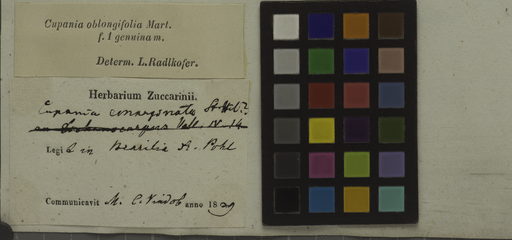 Cupania oblongifolia Mart.
f. 1 genuina m.
Determ. L. Radlkofer.
Herbarium Zuccarinii.
Cupania emarginata St. Hil.?
Vell. IV. t.
Legi t in Brasilia D. Pohl
Communicavit M. C. Vindob anno 1839